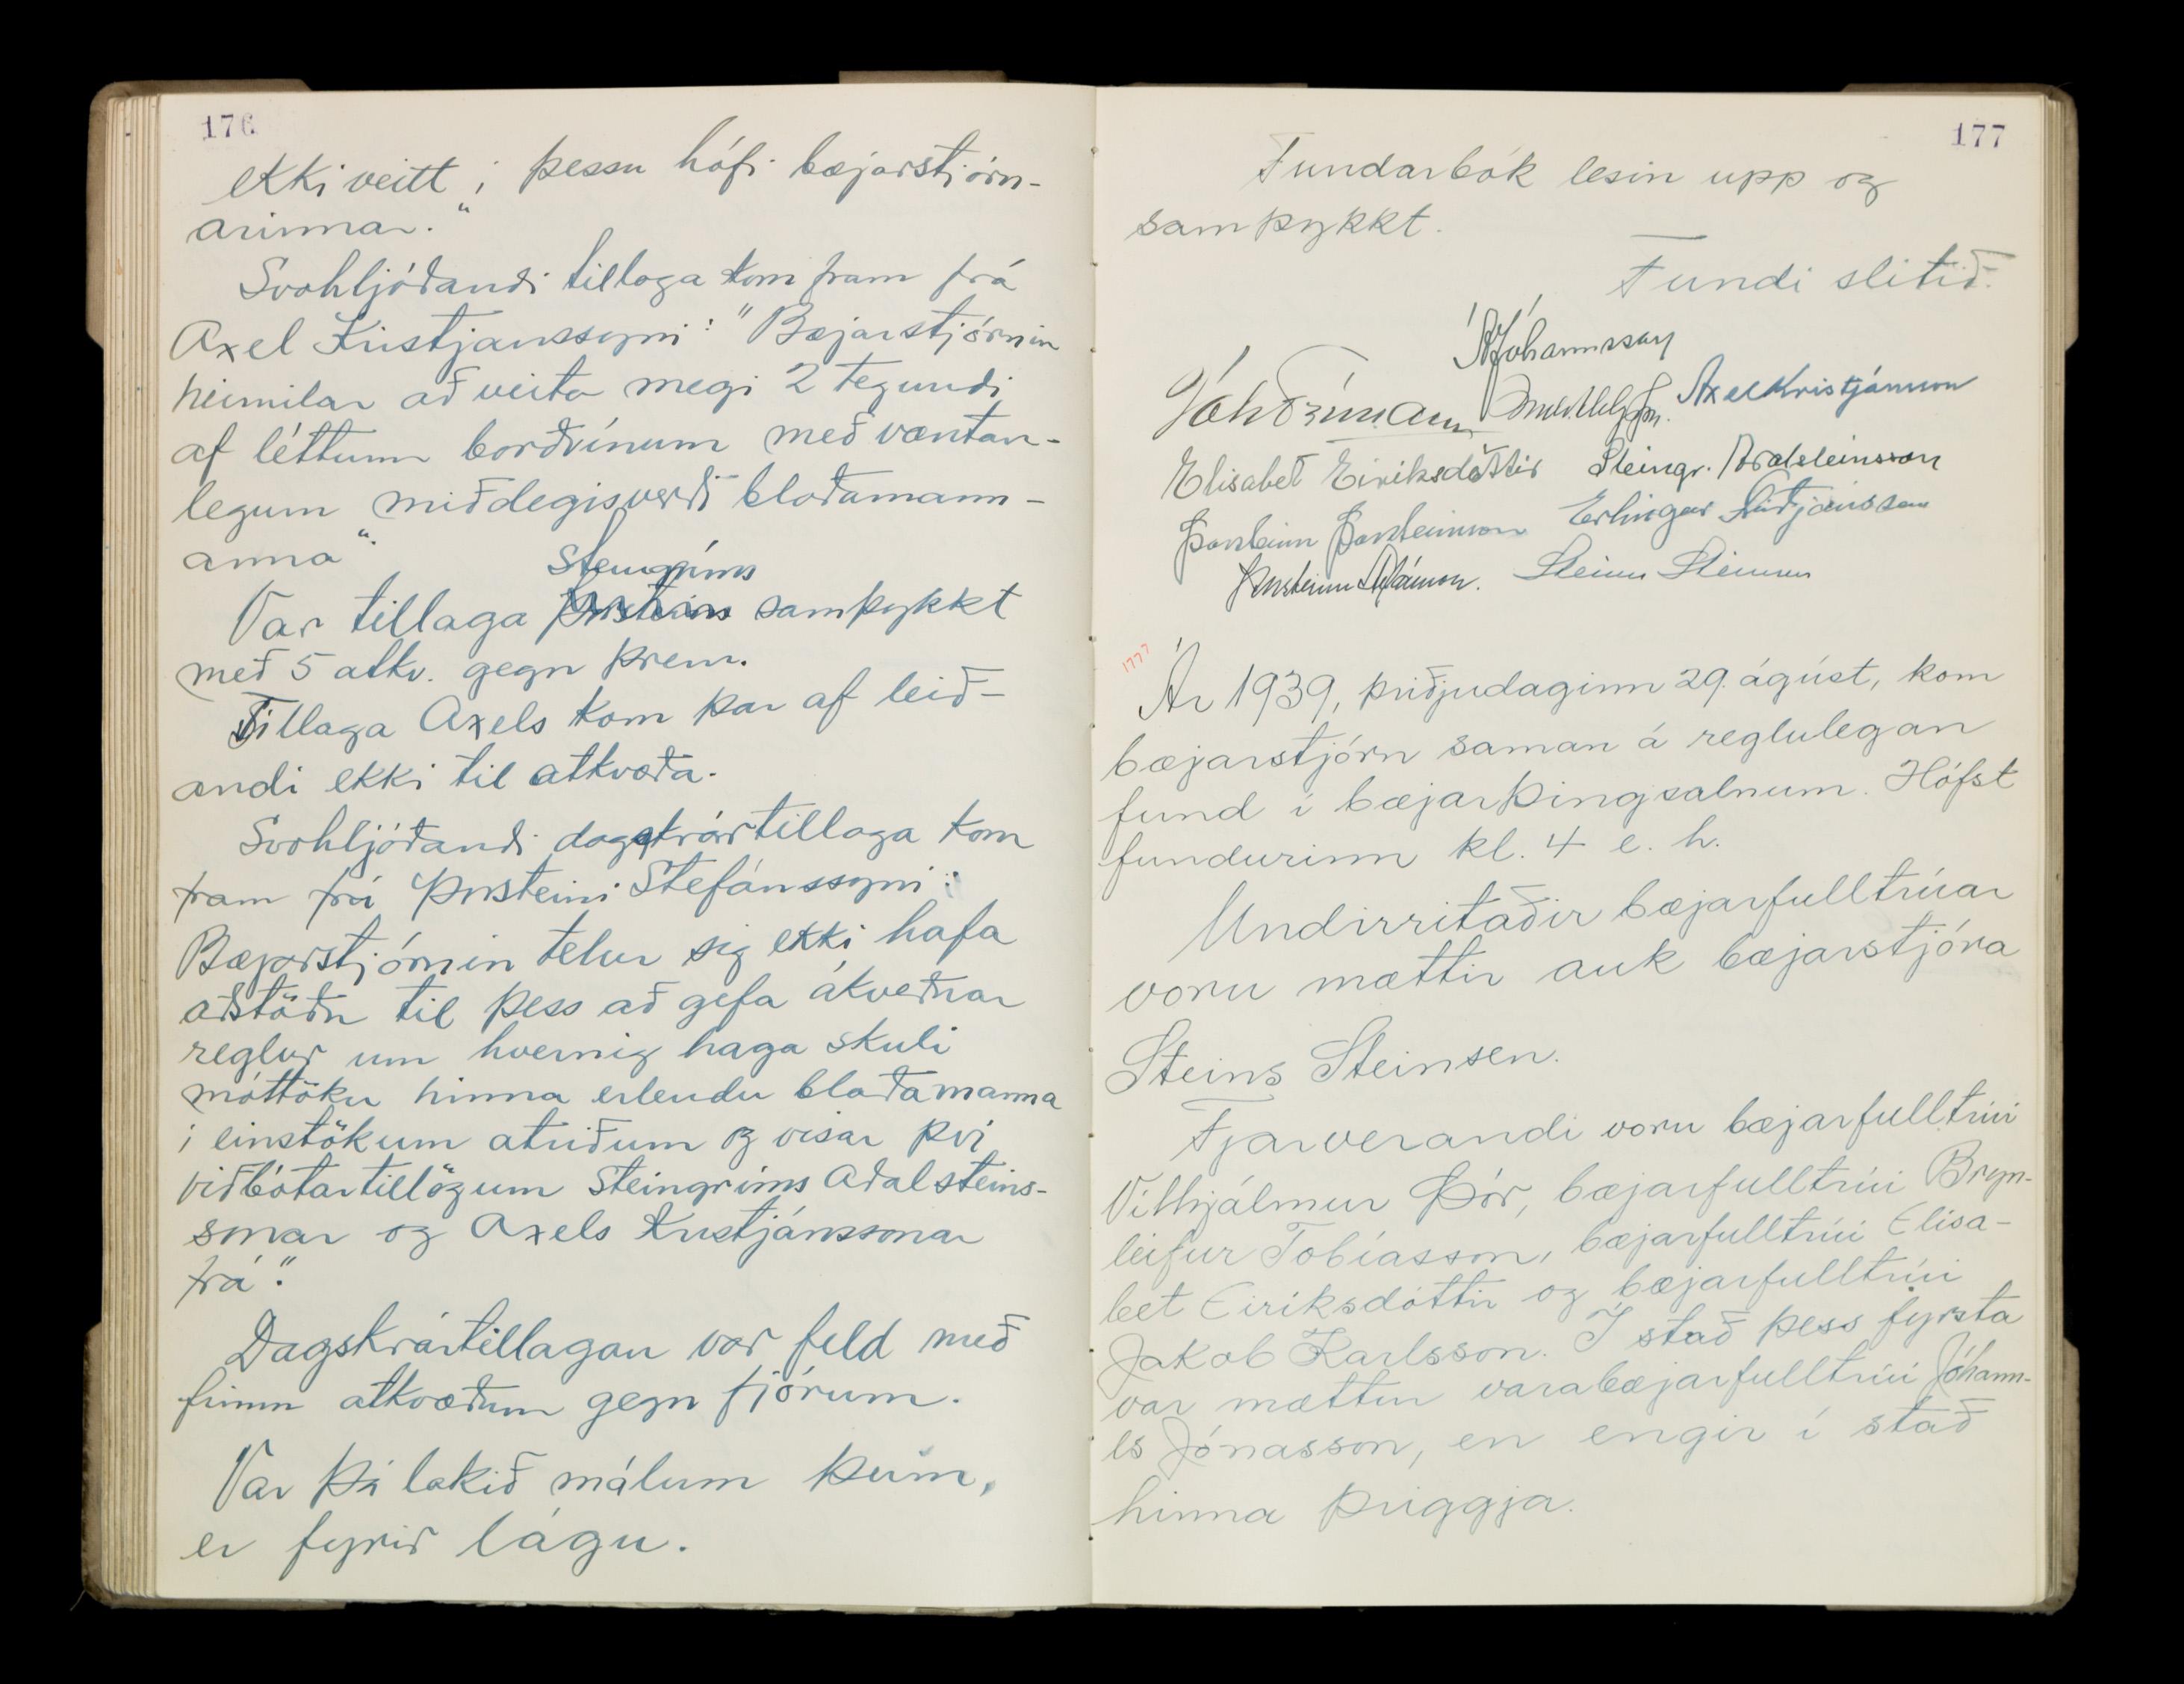 176
ekki veitt í þessu hófi bæjarstjórn-
arinnar."
Svohljóðandi tillaga kom fram frá
Axel Kristjanssyni: "Bæjarstjórnin
heimilar að veita megi 2 tegundi
af léttum borðvínum með væntan-
legum miðdegisverði blaðamann-
anna".
Steingríms
Var tillaga Þorsteins samþykkt
með 5 atkv. gegn þrem.
Tillaga Axels kom þar af leið-
andi ekki til atkvæða.
Svohljóðandi dagskrártillaga kom
fram frá Þorsteini Stefánssyni:
Bæjarstjórnin telur sig ekki hafa
aðstöðu til þess að gefa ákveðnar
reglur um hvernig haga skuli
móttöku hinna erlendu blaðamanna
í einstökum atriðum og vísar því
viðbótartillögum Steingríms Aðalsteins-
sonar og Axels Kristjánssonar
frá".
Dagskrártillagan var feld með
fimm atkvæðum gegn fjórum.
Var þá lokið málum þeim,
er fyrir lágu.
177
Fundarbók lesin upp og
samþykkt.
Fundi slitið.
Jóhannsson
Jóh Frímann Axel Kristjánsson
Elisabet Eiríksdóttir Steingr. Aðalsteinsson
Þorsteinn Þorsteinsson Erlingur Friðjónsson
Þorsteinn Stefánsson. Steinn Steinsen
1777
Ár 1939, þriðjudaginn 29. ágúst, kom
bæjarstjórn saman á reglulegan
fund í bæjarþingsalnum. Hófst
fundurinn kl. 4 e. h.
Undirritaðir bæjarfulltrúar
voru mættir auk bæjarstjóra
Steins Steinsen.
Fjarverandi voru bæjarfulltrúi
Vilhjálmur Þór, bæjarfulltrúi Bryn-
leifur Tobíasson, bæjarfulltrúi Elísa-
bet Eiríksdóttir og bæjarfulltrúi
Jakob Karlsson. Í stað þess fyrsta
var mættur varabæjarfulltrúi Jóhann-
es Jónasson, en engir í stað
hinna þriggja.